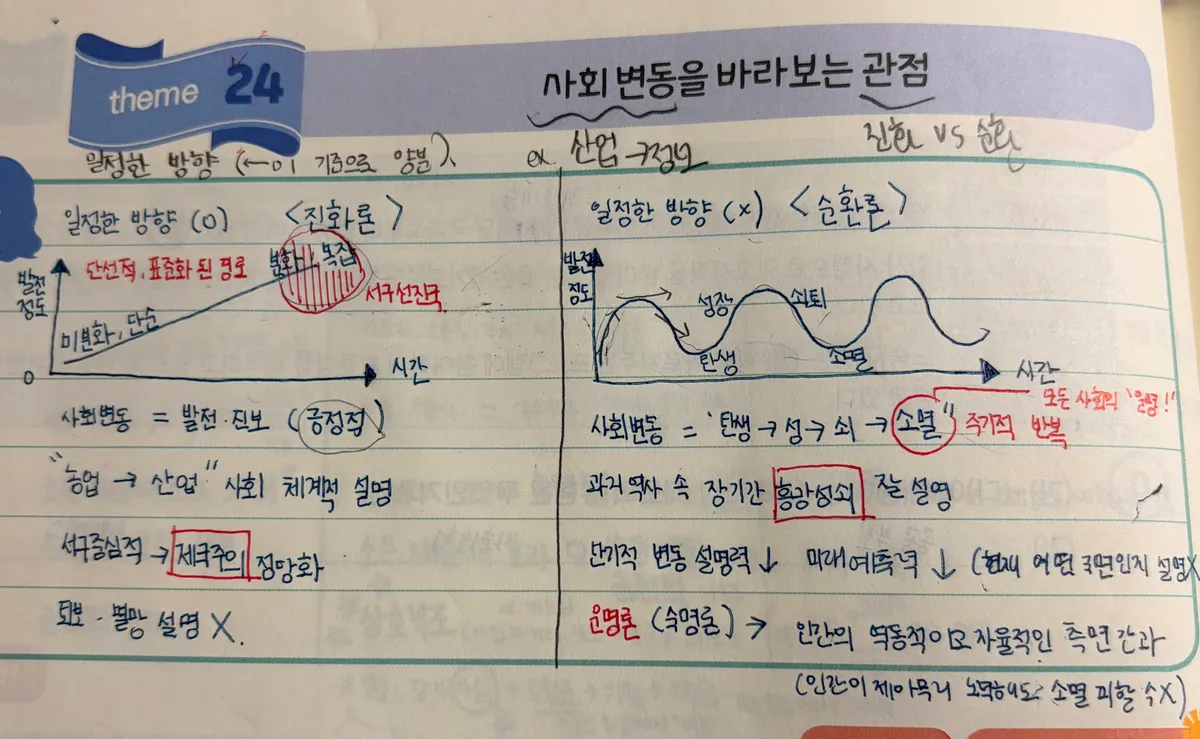 theme 24
사회 변동을 바라보는 관점
진화 vs 순환
일정한 방향 (←이 기준으로 양분).
ex. 산업→정보
일정한 방향 (O) <진화론>
발전 정도
단선적, 표준화 된 경로
분화, 복잡
서구선진국
미분화, 단순
0
시간
사회변동 = 발전·진보 (긍정적)
"농업 → 산업" 사회 체계적 설명
서구중심적 → 제국주의 정당화
퇴보·멸망 설명 X.
일정한 방향 (X) <순환론>
발전 정도
성장
쇠퇴
탄생
소멸
시간
모든 사회의 '운명!'
사회변동 = "탄생 → 성 → 쇠 → 소멸" 주기적 반복
과거 역사 속 장기간 흥망성쇠 잘 설명
단기적 변동 설명력 ↓ 미래예측력 ↓ (현재 어떤 국면인지 설명X
운명론 (숙명론) → 인간의 역동적이고 자율적인 측면 간과
(인간이 제아무리 노력해도 소멸 피할 수X)